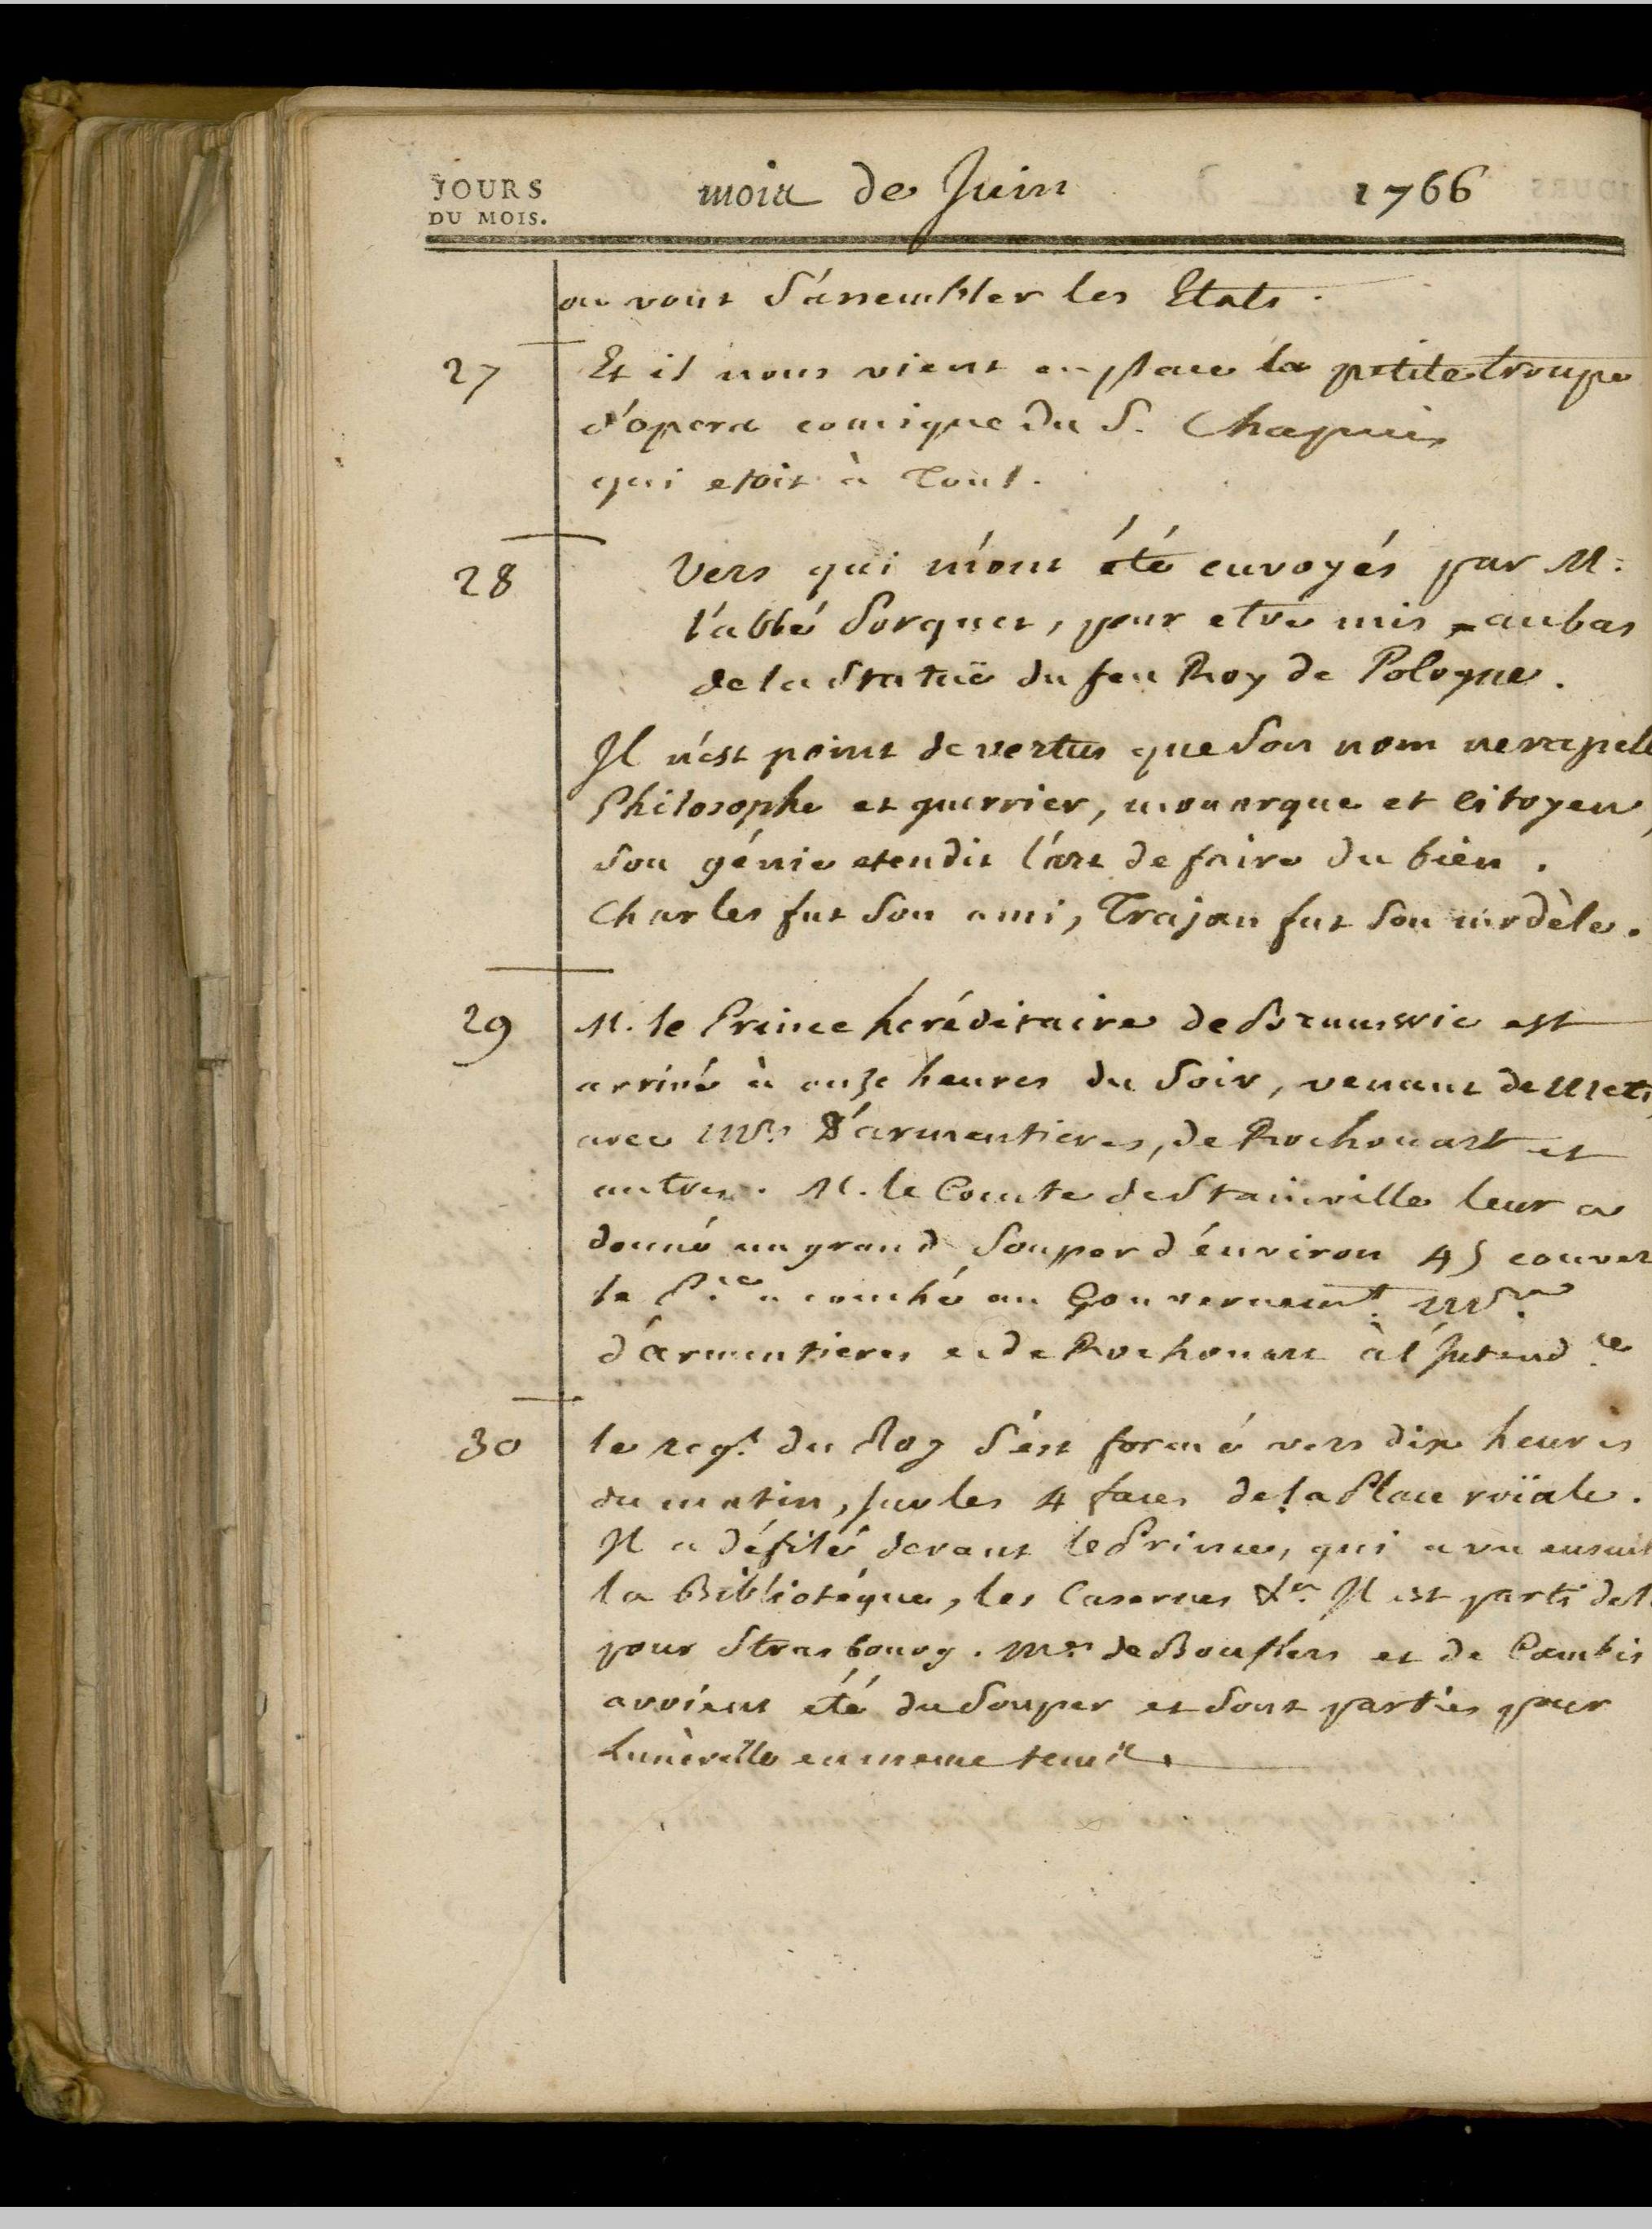 JOURS
DU MOIS.
mois de Juin 1766
ou vont s'assembler les Etats.
27 Et il nous vient en place la petite troupe
d'opera comique du S. Chapuis
qui etoit à Toul.
28 Vers qui m'ont été envoyés par M.
l'abbé Porquet, pour etre mis au bas
de la Statuë du feu Roy de Pologne.
Il n'est point de vertus que son nom ne rapell
Philosophe et guerrier, monarque et citoyen,
son génie etendit l'art de faire du bien.
Charles fut son ami, Trajan fut son modèle.
29 M. le Prince heréditaire de Brunswic est
arrivé à onze heures du soir, venant de Metz
avec Mrs. D'armentieres, de Rochouart et
autres. M. le Comte de Stainville leur a
donné un grand souper d'énviron 45 couver
le P.ce a couché au Gouvernement. Mrs.
d'armentieres et de Rochouart à l'Intend.ce
30 le regt. du Roy s'est formé vers dix heures
du matin, sur les 4 faces de la Place roïale.
Il a défilé devant le Prince, qui a vu ensuit
la Bibliotéque, les Casernes &a. Il est parti de l
pour Strasbourg. Mes de Bouflers et de Cambis
avoient été du souper et sont parties pour
Lunéville en meme tems.